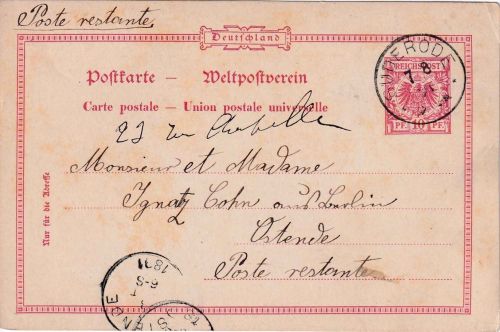 Poste restante.
Deutschland
Postkarte – Weltpostverein
Carte postale – Union postale universelle
SUDERODE
7 8
REICHSPOST
PF. 10 PF.
23 rue
Monsieur et Madame
Ignatz Cohn aus Berlin
Ostende
Poste restante
Nur für die Adresse
1891
6-S